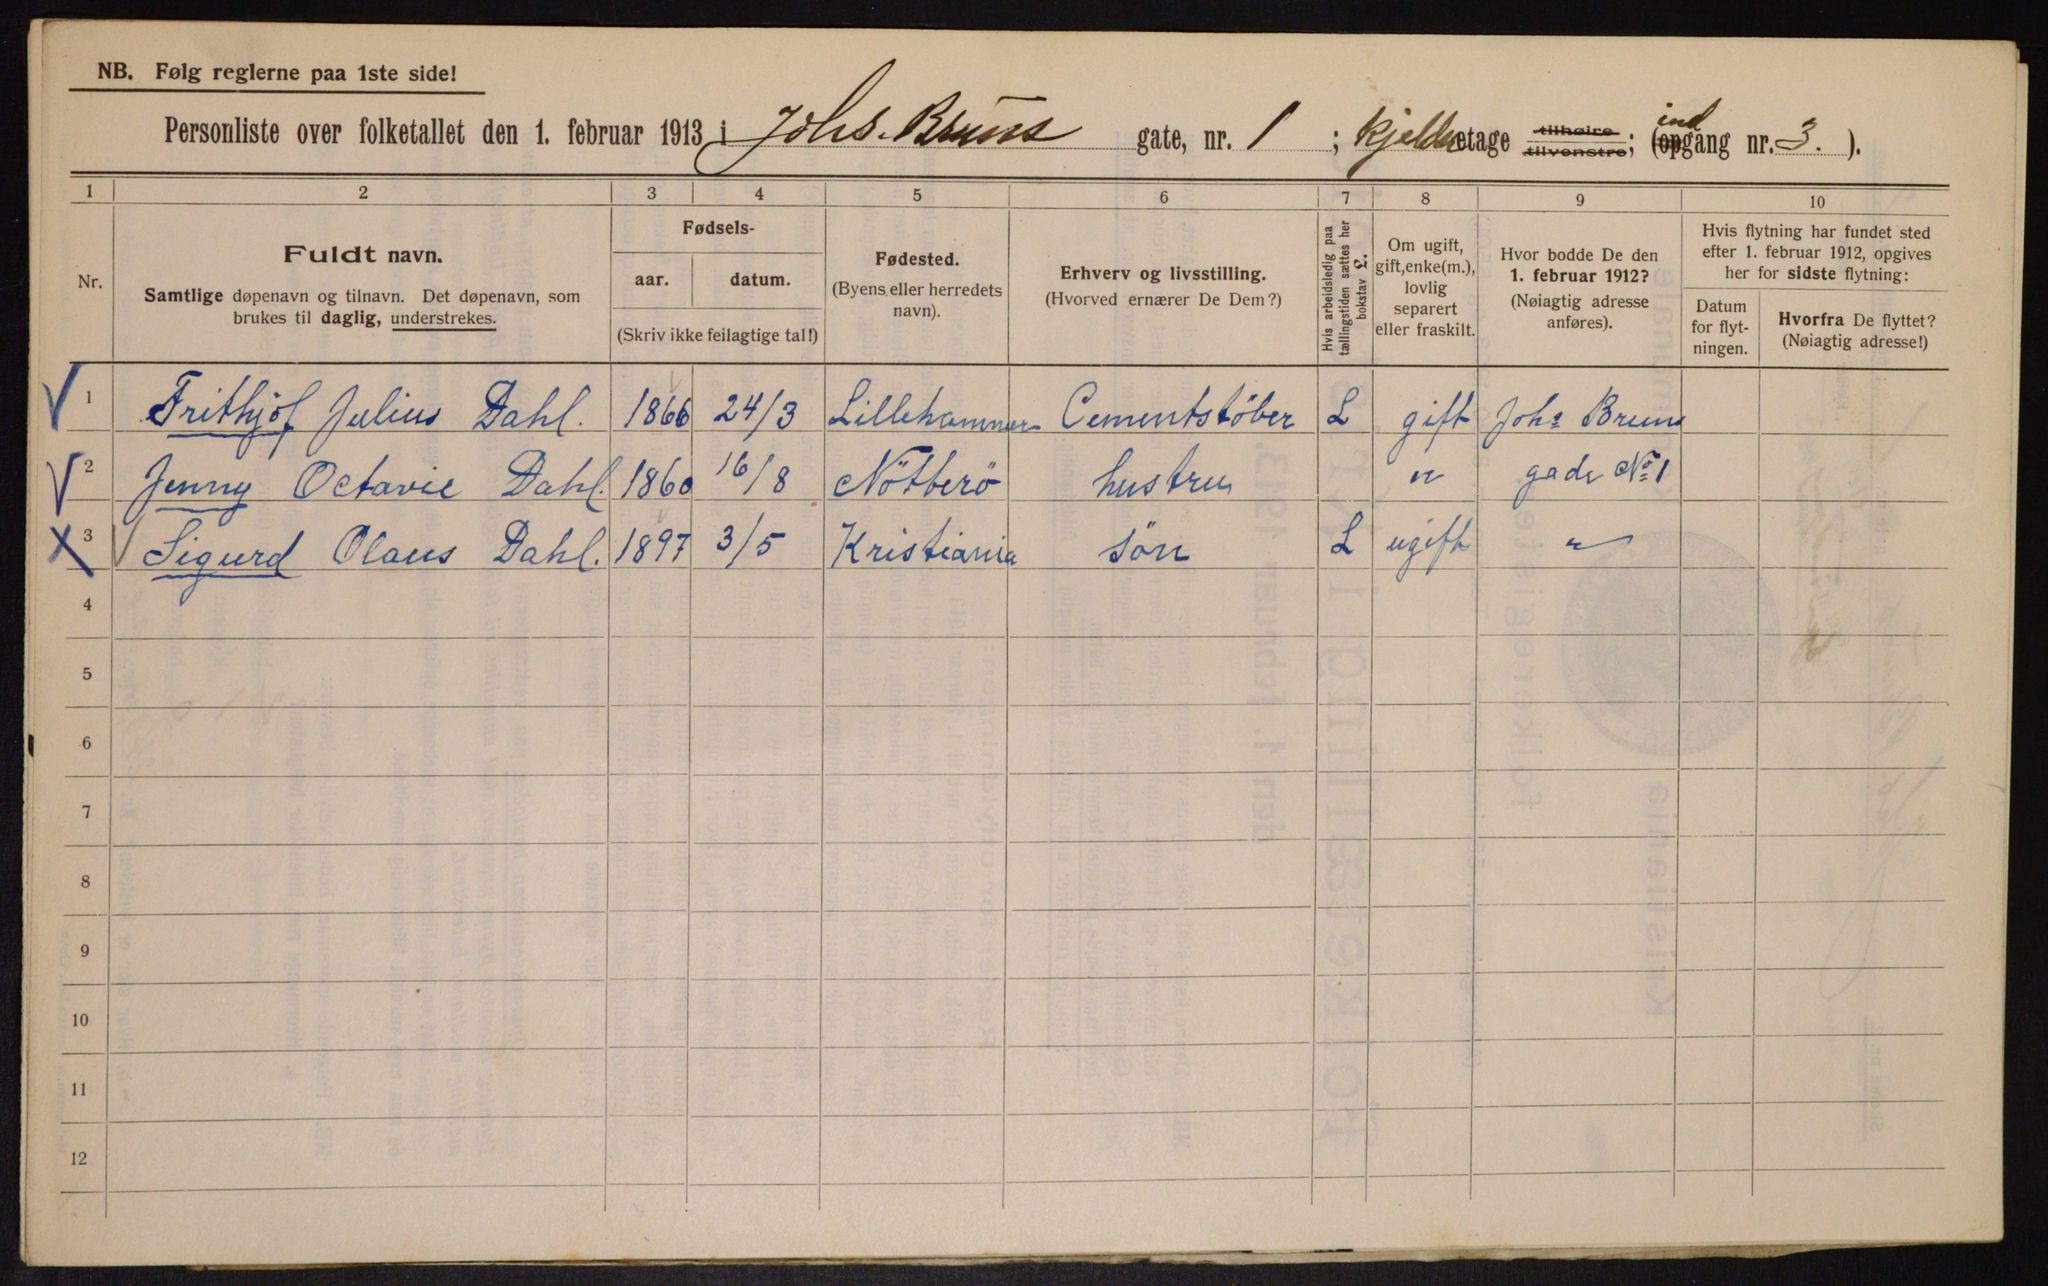 NB. Følg reglerne paa 1ste side!
Personliste over folketallet den 1. februar 1913 i Johs. Bruns gate, nr. 1 ; Kjelder etage tilhøire tilvenstre; (opgang ind nr. 3. ).
1 2 3 4 5 6 7 8 9 10
Nr.
Fuldt navn.
Samtlige døpenavn og tilnavn. Det døpenavn, som
brukes til daglig, understrekes.
Fødsels-
aar. datum.
(Skriv ikke feilagtige tal!)
Fødested.
(Byens eller herredets
navn).
Erhverv og livsstilling.
(Hvorved ernærer De Dem?)
Hvis arbeidsledig paa
tællingstiden sættes her
bokstav L.
Om ugift,
gift, enke(m.),
lovlig
separert
eller fraskilt.
Hvor bodde De den
1. februar 1912?
(Nøiagtig adresse
anføres).
Hvis flytning har fundet sted
efter 1. februar 1912, opgives
her for sidste flytning:
Datum
for flyt-
ningen.
Hvorfra De flyttet?
(Nøiagtig adresse!)
1 Frithjof Julius Dahl. 1866 24/3 Lillehammer Cementstöber L gift Johs Bruns
2 Jenny Octavie Dahl. 1860 16/8 Nötterö hustru " gade No 1
3 Sigurd Olaus Dahl. 1897 3/5 Kristiania sön L ugift "
4
5
6
7
8
9
10
11
12